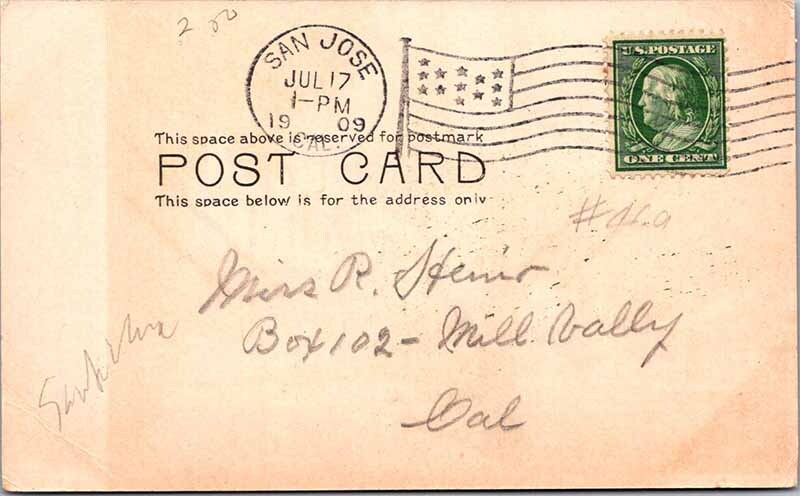 2 00
SAN JOSE
JUL 17
1-PM
19 09
CAL.
U.S. POSTAGE
ONE CENT
This space above is reserved for postmark
POST CARD
This space below is for the address only
Miss R.
Box 102 - Mill Vally
Cal